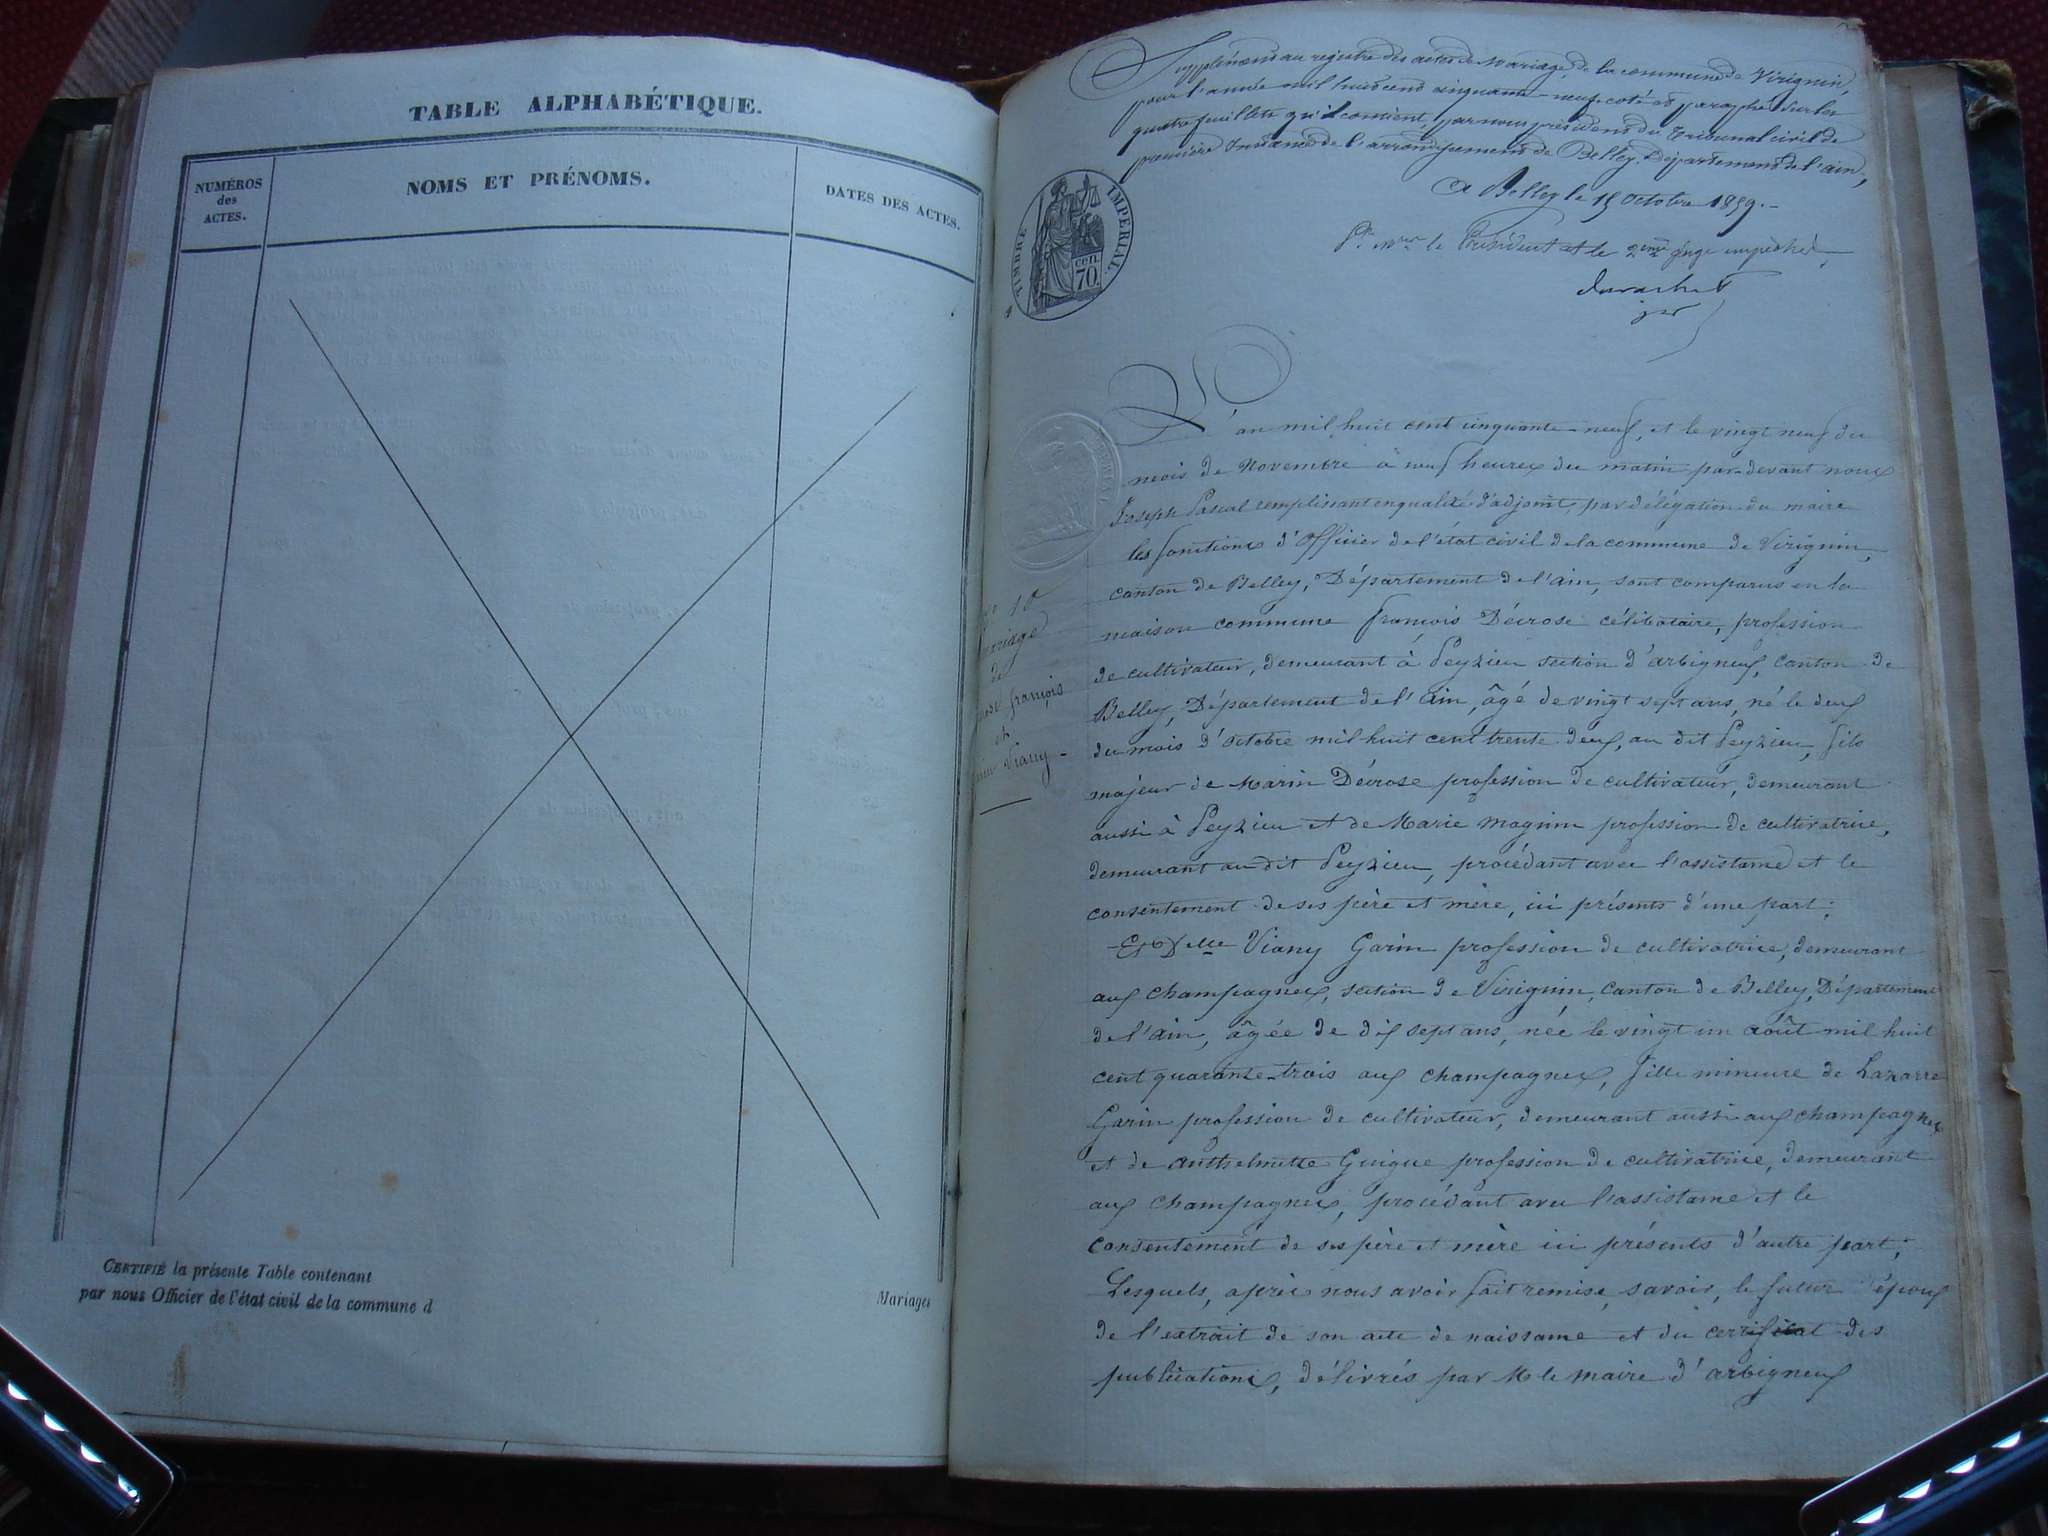 TABLE ALPHABÉTIQUE.
NUMÉROS
des
ACTES.
NOMS ET PRÉNOMS.
DATES DES ACTES.
CERTIFIÉ la présente Table contenant
par nous Officier de l'état civil de la commune d
Mariages
Supplément au registre des actes de Mariage, de la commune de Virignin,
pour l'année mil huit cent cinquante-neuf coté et paraphé sur les
quatre feuillets qu'il contient, par nous président du Tribunal civil de
première Instance de l'arrondissement de Belley, Département de l'ain,
A Belley le 15 octobre 1859.-
Pr Mr le Président et le 2eme juge empêchés
TIMBRE IMPERIAL.
70. cen.
L'an mil huit cent cinquante-neuf, et le vingt neuf du
mois de Novembre à neuf heures du matin par-devant nous
Joseph Pascal remplissant en qualité d'adjoint, par délégation du maire
les fonctions d'Officier de l'état civil de la commune de Virignin,
canton de Belley, Département de l'ain, sont comparus en la
maison commune françois Décrose célibataire, profession
de cultivateur, demeurant à Peyzieu section d'arbigneux, canton de
Belley, Département de l'ain, âgé de vingt sept ans, né le deux
du mois d'octobre mil huit cent trente deux, au dit Peyzieu, fils
majeur de Marin Décrose profession de cultivateur, demeurant
aussi à Peyzieu et de Marie Magnin profession de cultivatrice,
demeurant au dit Peyzieu, procédant avec l'assistance et le
consentement de ses père et mère, ici présents d'une part;
Et Delle Viany Garin profession de cultivatrice, demeurant
aux champagnes, section de Virignin, canton de Belley, Département
de l'ain, âgée de dix sept ans, née le vingt un août mil huit
cent quarante-trois aux champagnes, fille mineure de Lazarre
Garin profession de cultivateur, demeurant aussi aux champagnes
et de anthelmette Guigue profession de cultivatrice, demeurant
aux champagnes, procédant avec l'assistance et le
consentement de ses père et mère ici présents d'autre part;
Lesquels, après nous avoir fait remise, savoir, le futur époux
de l'extrait de son acte de naissance et du certificat des
publications, délivrés par M le maire d'arbigneux
No 10
Mariage
de
françois
et
Viany -